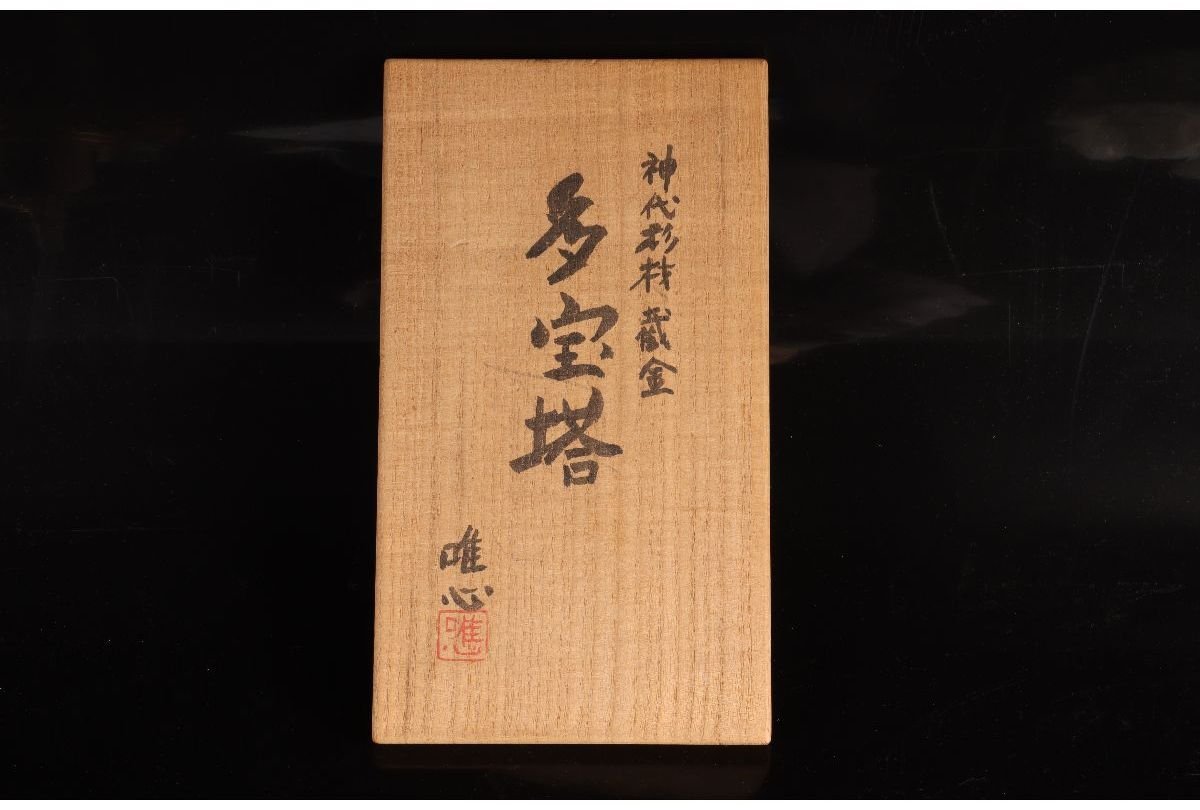 神代杉材截金
多宝塔
唯心
唯心